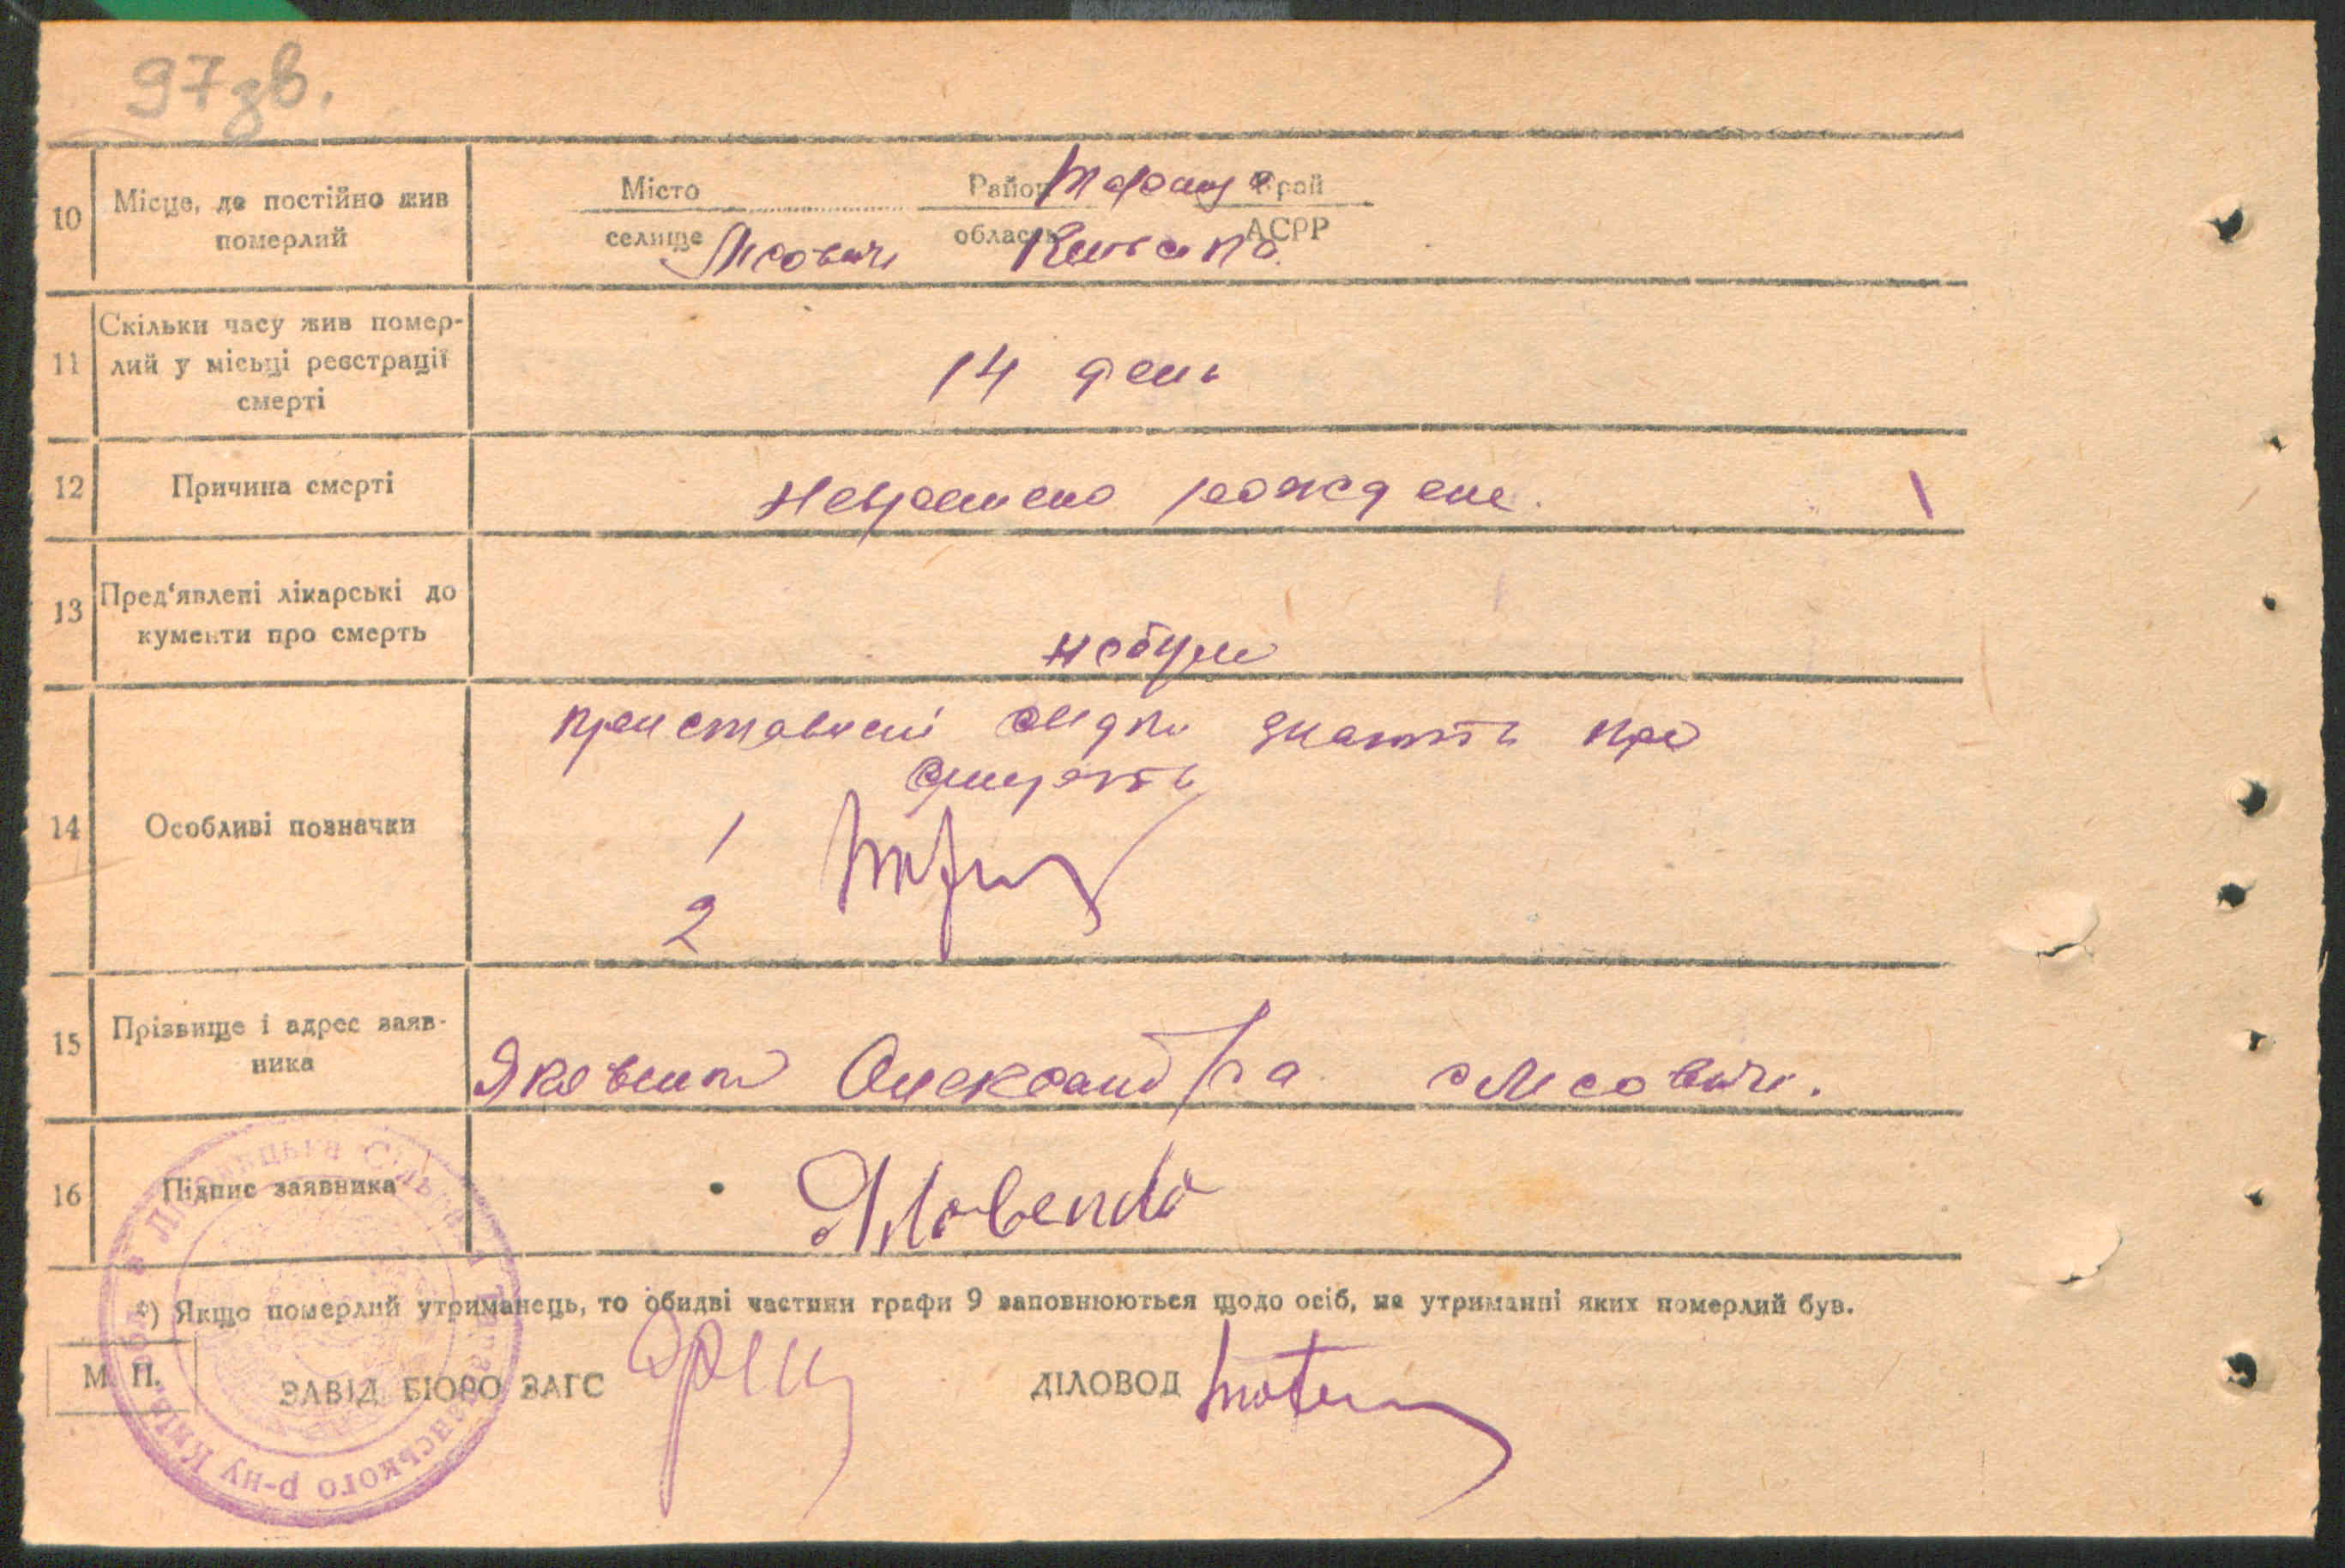 97 зв.
10 Місце, де постійно жив померлий
Місто Район Таращ Край
селище Лісовичі область Київська АСРР
11 Скільки часу жив помер-
лий у місьці реєстрації
смерті
14 день
12 Причина смерті
невремено рождене.
13 Пред'явлені лікарські до
кументи про смерть
небули
14 Особливі позначки
приставлені свідки знають про
смерть
1
2
15 Прізвище і адрес заяв-
ника
Олександра с Лісовичі.
16 Підпис заявника
*) Якщо померлий утриманець, то обидві частини графи 9 заповнюються щодо осіб, на утриманні яких померлий був.
М. П. ЗАВІД БЮРО ЗАГС ДІЛОВОД
Лісовицька Сільська Таращанського р-ну Київ. обл.